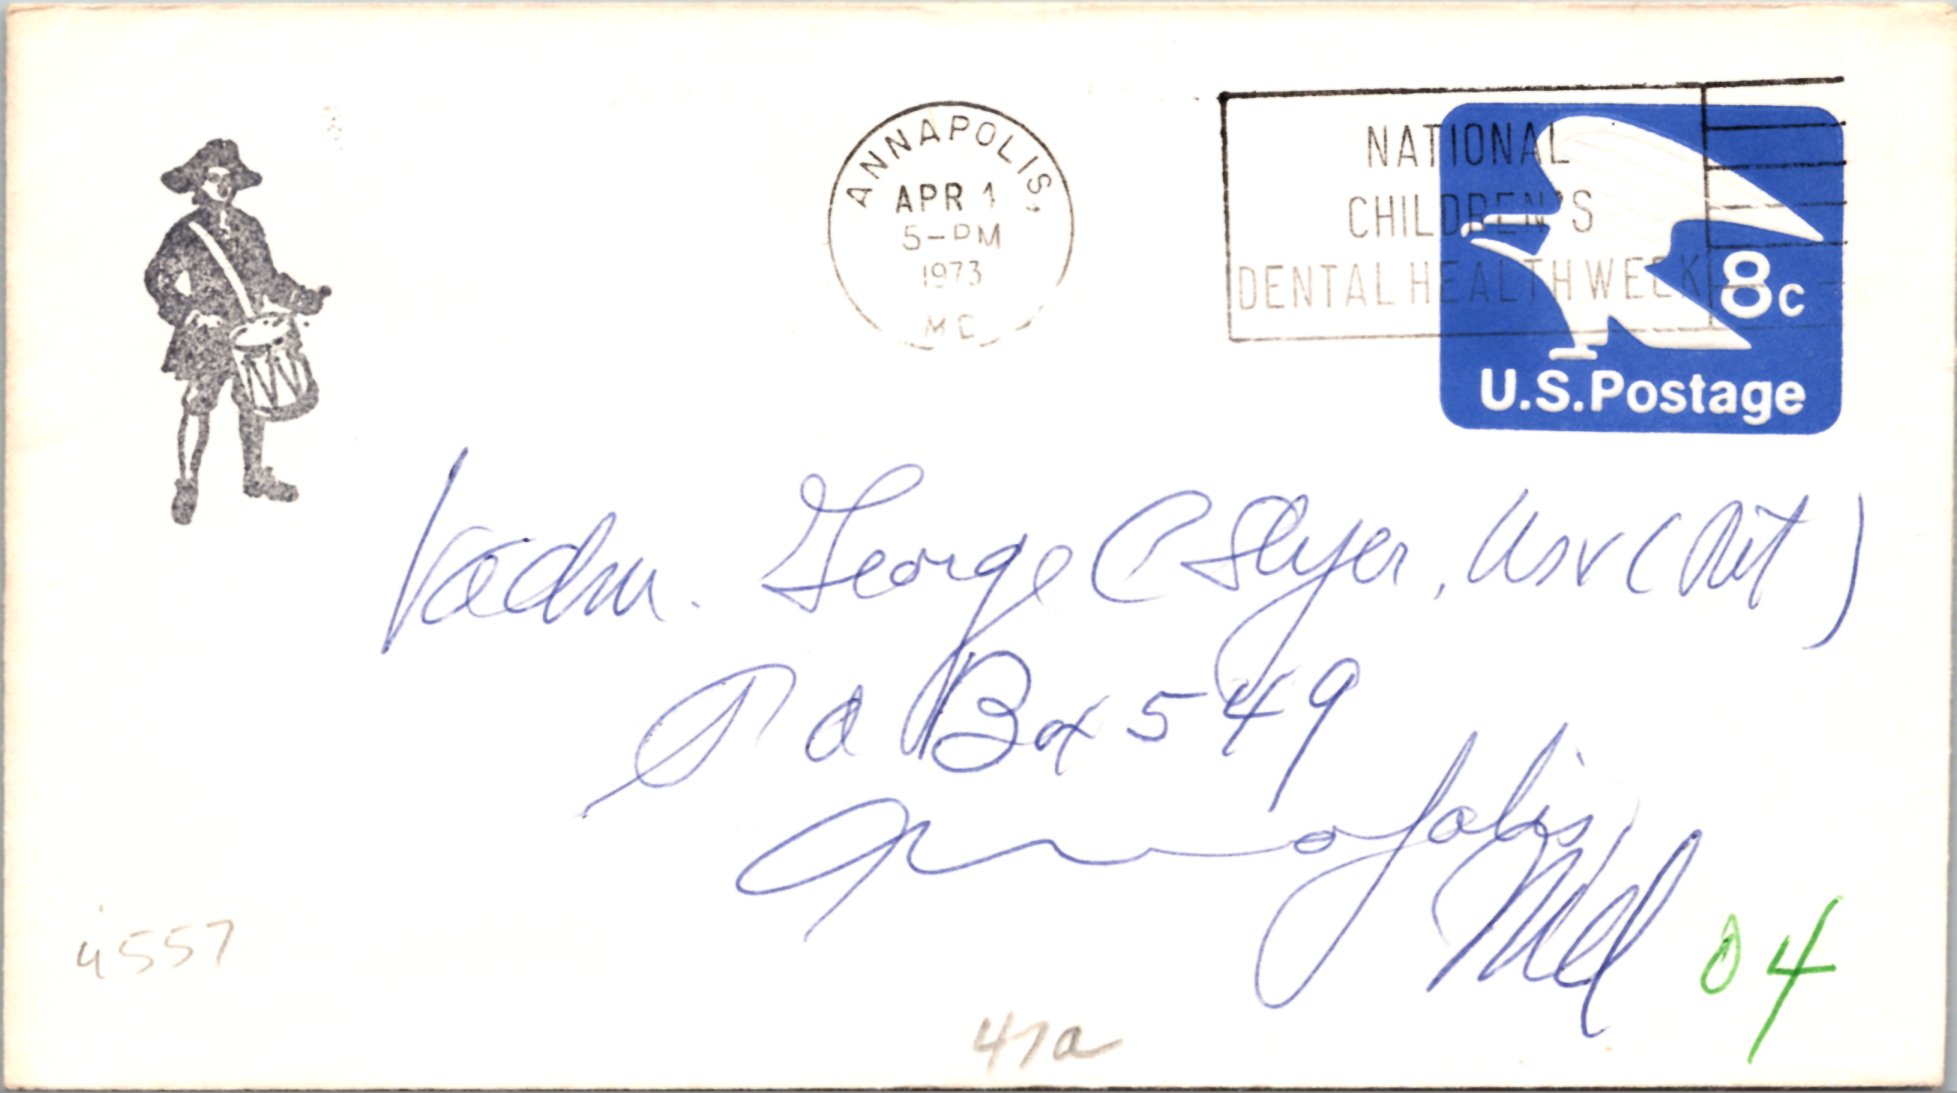 ANNAPOLIS,
APR 1
5-PM
1973
MD
NATIONAL
CHILDREN'S
DENTAL HEALTH WEEK
8c
U.S. Postage
Vadm. George C Dyer, USN (Ret)
P O Box 549
Annapolis,
Md 04
4557
47a